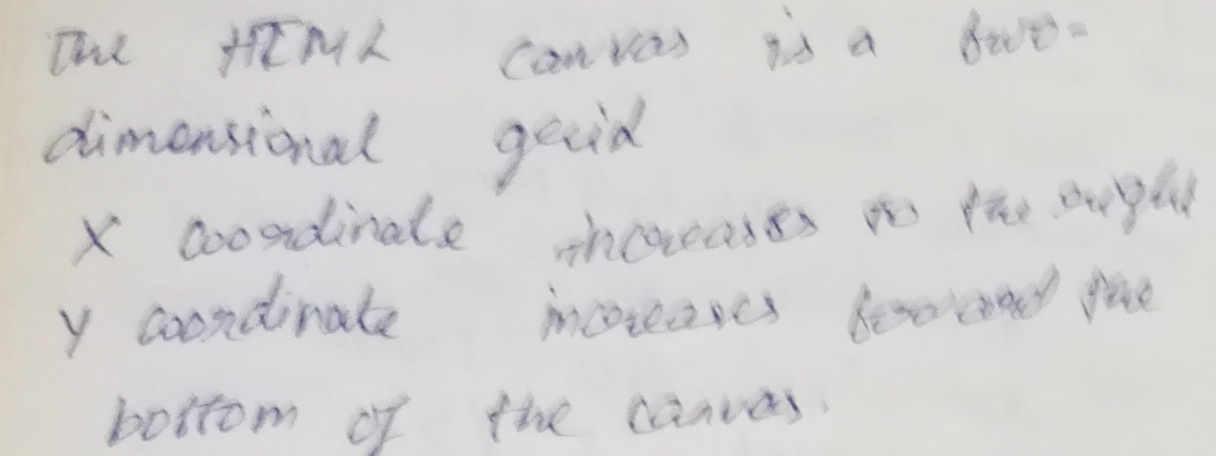 The HTML canvas is a two-
dimensional grid
X coordinate increases to the right
Y coordinate increases toward the
bottom of the canvas.